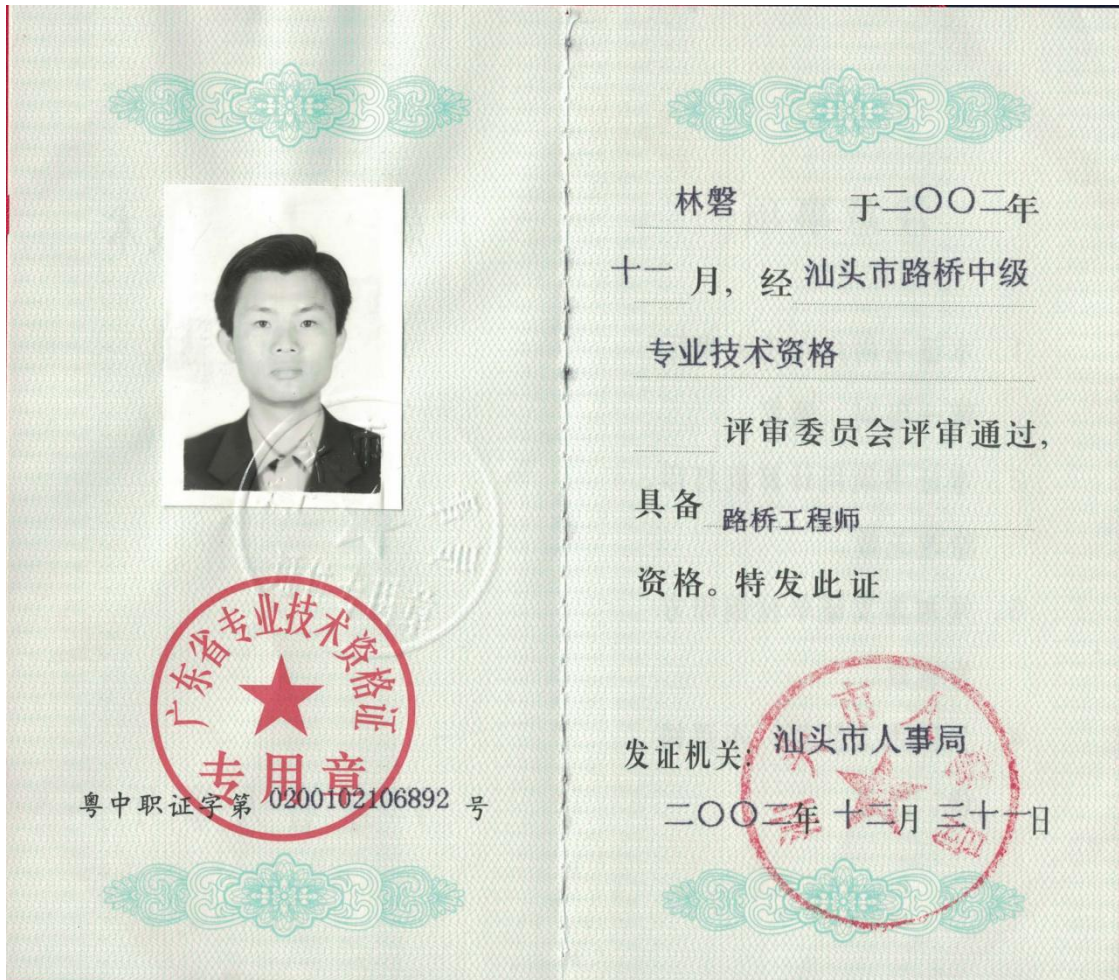 广东省专业技术资格证
专用章
粤中职证字第 0200102106892 号
林磐 于二〇〇二年
十一月，经 汕头市路桥中级
专业技术资格
评审委员会评审通过，
具备 路桥工程师
资格。特发此证
汕头市人事局
发证机关：汕头市人事局
二〇〇二年 十二月 三十一日